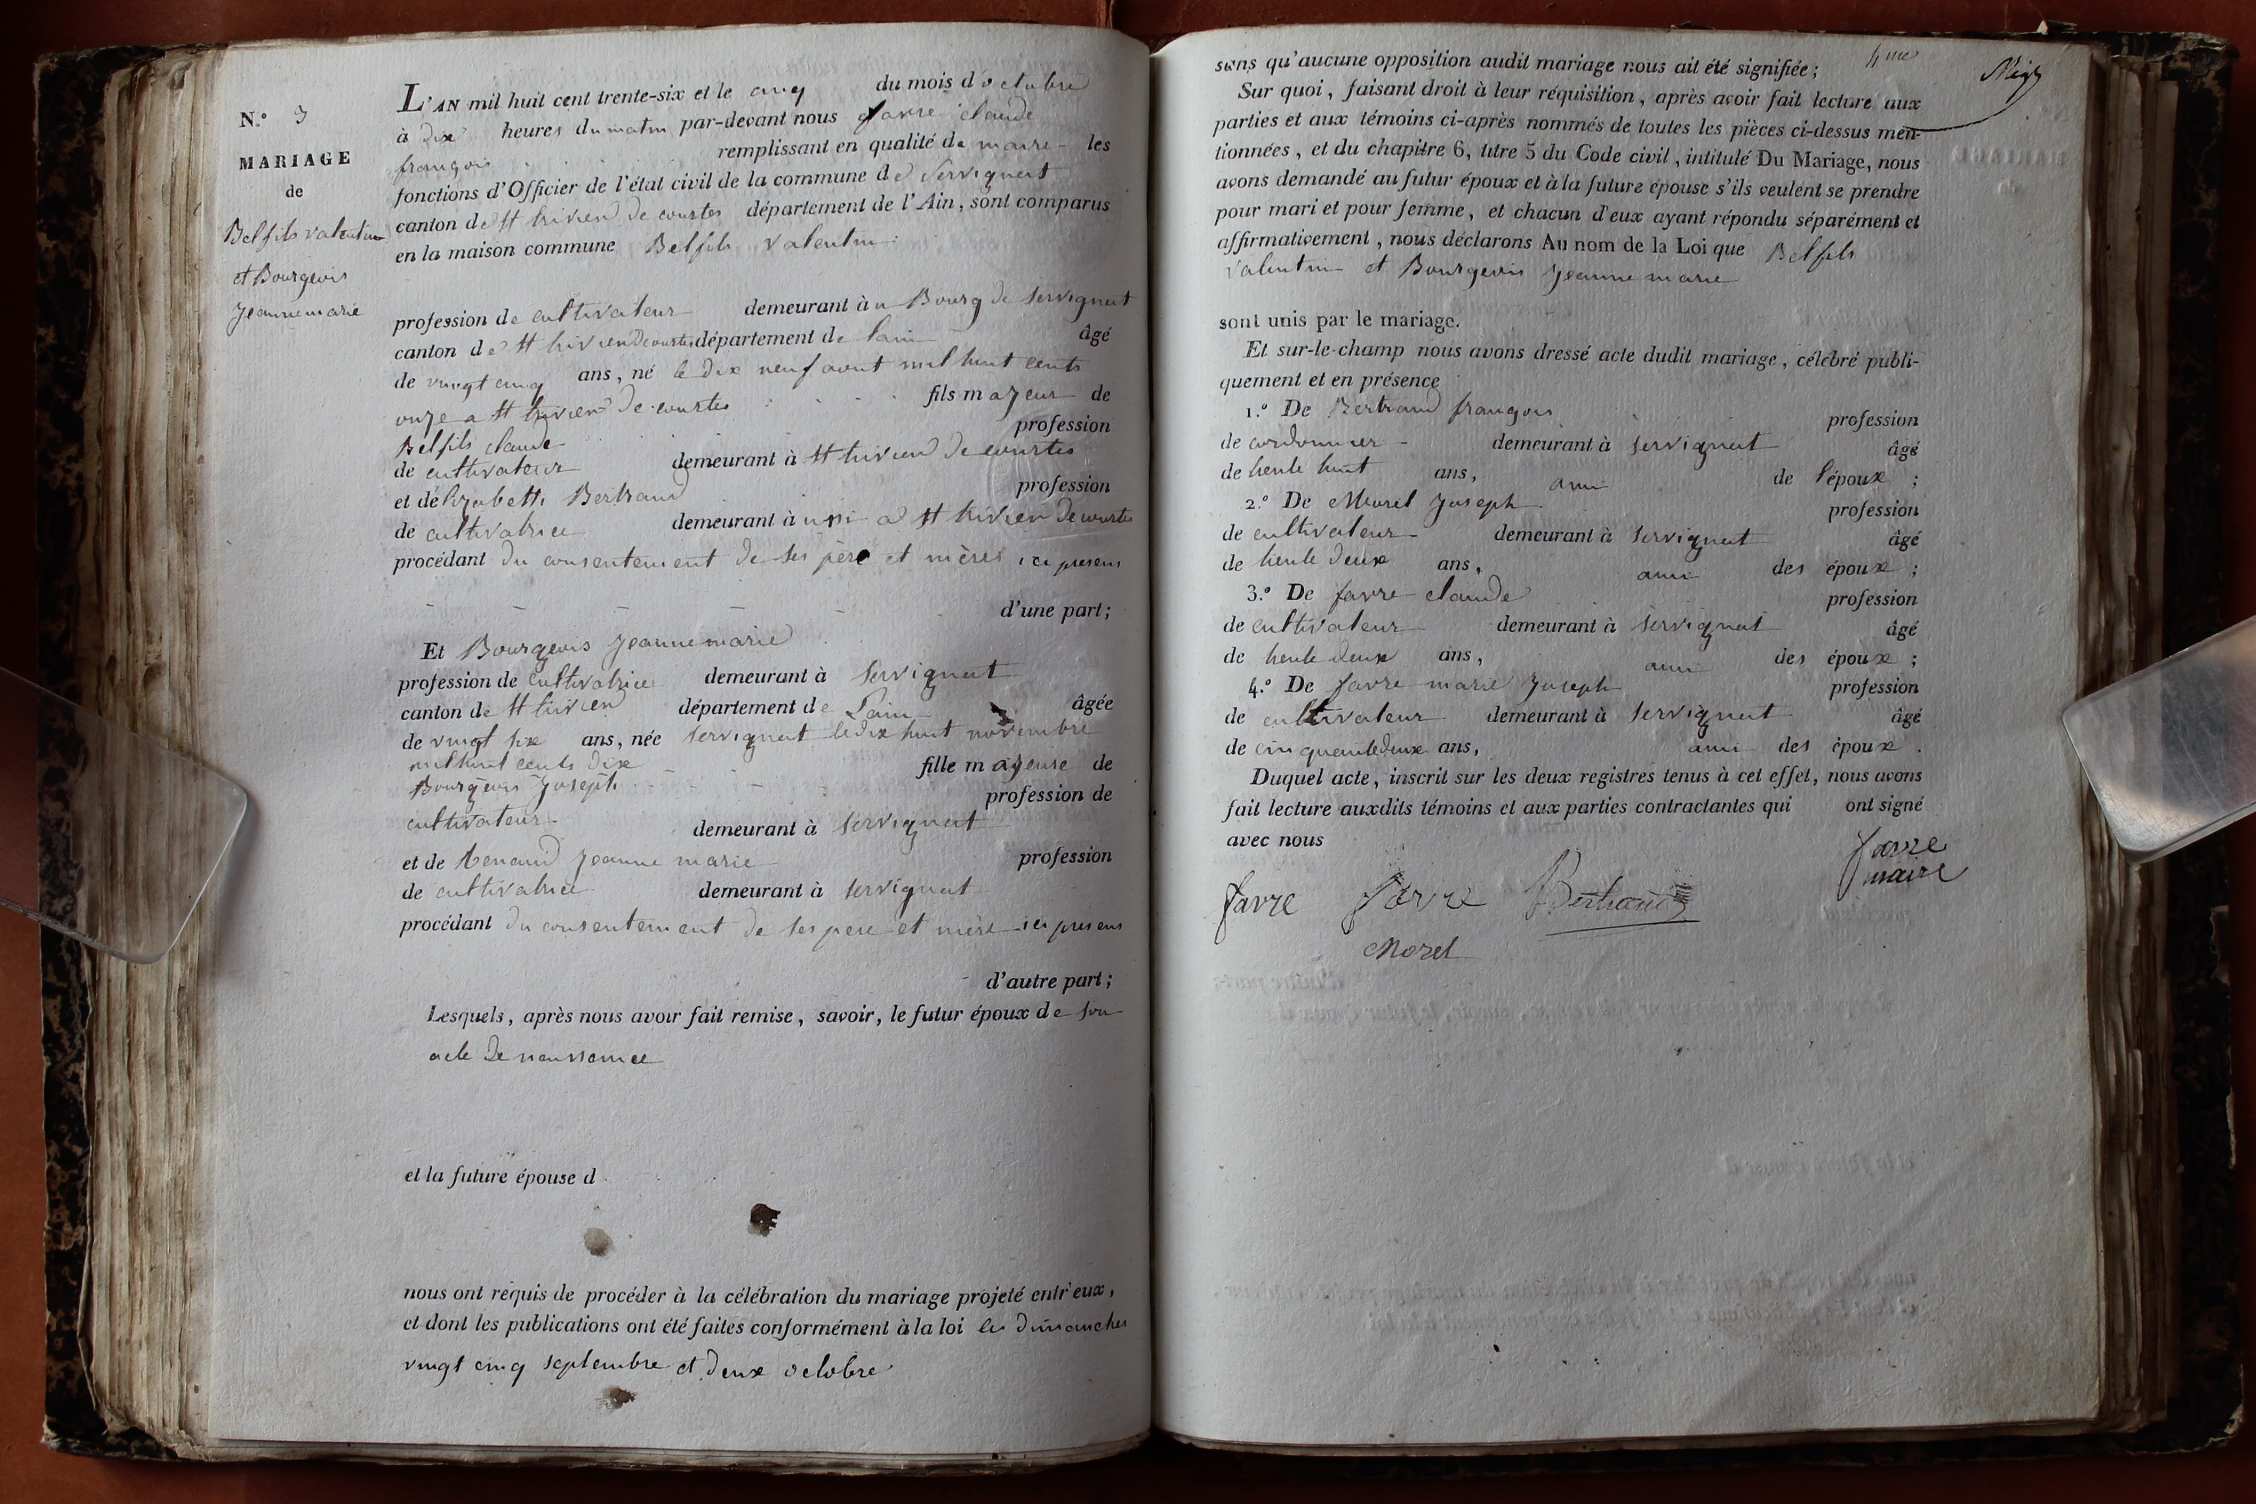 N.º 3
MARIAGE
de
Belfils valentin
et Bourgeois
jeanne marie
L'AN mil huit cent trente-six et le cinq du mois d'octobre
à dix heures du matin par-devant nous favre claude
françois remplissant en qualité de maire les
fonctions d'Officier de l'état civil de la commune de Servignat
canton de St trivien de courtes département de l'Ain, sont comparus
en la maison commune Belfils valentin
profession de cultivateur demeurant à u Bourg de servignat
canton de St trivien de courtes département de lain âgé
de vingt cinq ans, né le dix neuf aout mil huit cents
onze a St trivien de courtes fils majeur de
Belfils claude profession
de cultivateur demeurant à St trivien de courtes
et de Elizabeth Bertrand profession
de cultivatrice demeurant à ussi a St trivien de courtes
procédant du consentement de ses père et mères ici presens
d'une part;
Et Bourgeois jeanne marie
profession de cultivatrice demeurant à servignat
canton de St trivien département de Lain âgée
de vingt six ans, née servignat le dix huit novembre
mil huit cents dix fille majeure de
Bourgeois joseph profession de
cultivateur demeurant à servignat
et de Renaud jeanne marie profession
de cultivatrice demeurant à servignat
procédant du consentement de ses pere et mère ici presens
d'autre part;
Lesquels, après nous avoir fait remise, savoir, le futur époux de son
acte de naissance
et la future épouse d
nous ont requis de procéder à la célébration du mariage projeté entr'eux,
et dont les publications ont été faites conformément à la loi les dimanches
vingt cinq septembre et deux octobre
sans qu'aucune opposition audit mariage nous ait été signifiée;
Sur quoi, faisant droit à leur réquisition, après avoir fait lecture aux
parties et aux témoins ci-après nommés de toutes les pièces ci-dessus men-
tionnées, et du chapitre 6, titre 5 du Code civil, intitulé Du Mariage, nous
avons demandé au futur époux et à la future épouse s'ils veulent se prendre
pour mari et pour femme, et chacun d'eux ayant répondu séparément et
affirmativement, nous déclarons Au nom de la Loi que Belfils
valentin et Bourgeois jeanne marie
sont unis par le mariage.
Et sur-le-champ nous avons dressé acte dudit mariage, célébré publi-
quement et en présence
1.º De Bertrand françois profession
de cordonnier demeurant à servignat âgé
de trente huit ans, ami de l'époux ;
2.º De Morel joseph profession
de cultivateur demeurant à servignat âgé
de trente deux ans, ami des époux ;
3.º De favre claude profession
de cultivateur demeurant à servignat âgé
de trente deux ans, ami des époux ;
4.º De favre marie joseph profession
de cultivateur demeurant à servignat âgé
de cinquante deux ans, ami des époux .
Duquel acte, inscrit sur les deux registres tenus à cet effet, nous avons
fait lecture auxdits témoins et aux parties contractantes qui ont signé
avec nous
favre
maire
favre favre Bertrand
Morel